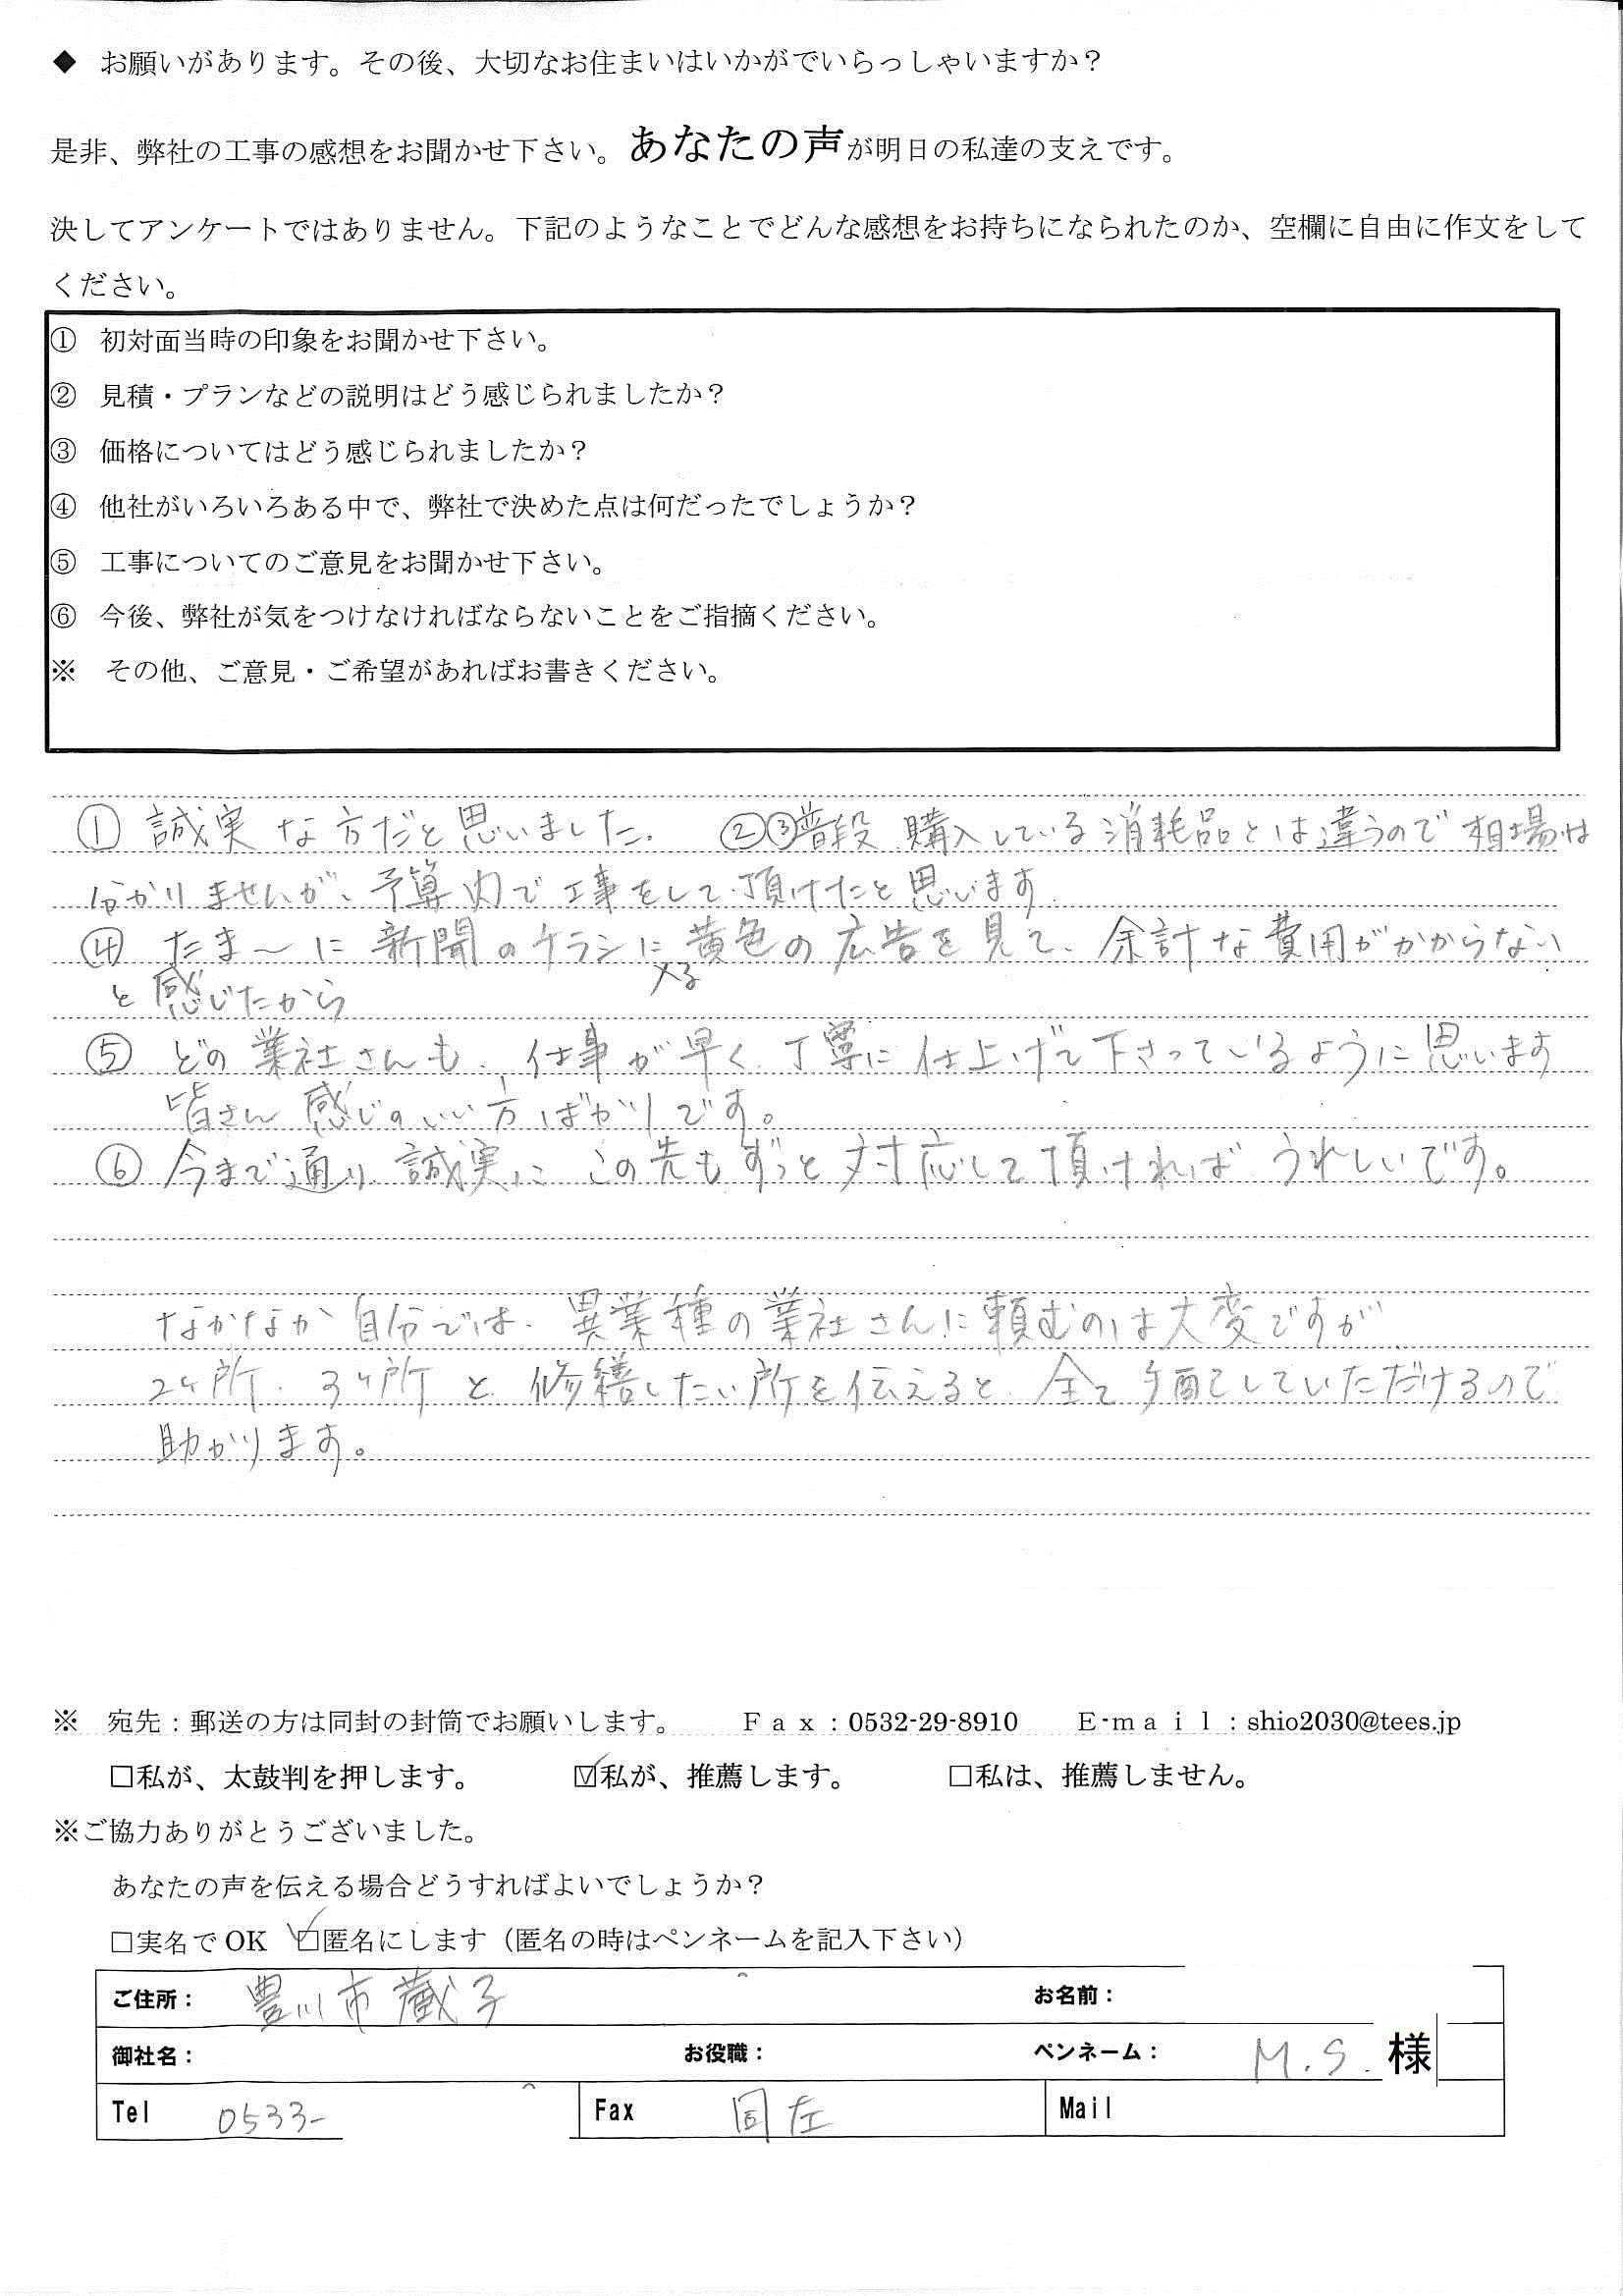 ◆ お願いがあります。その後、大切なお住まいはいかがでいらっしゃいますか？
是非、弊社の工事の感想をお聞かせ下さい。あなたの声が明日の私達の支えです。
決してアンケートではありません。下記のようなことでどんな感想をお持ちになられたのか、空欄に自由に作文をして
ください。
① 初対面当時の印象をお聞かせ下さい。
② 見積・プランなどの説明はどう感じられましたか？
③ 価格についてはどう感じられましたか？
④ 他社がいろいろある中で、弊社で決めた点は何だったでしょうか？
⑤ 工事についてのご意見をお聞かせ下さい。
⑥ 今後、弊社が気をつけなければならないことをご指摘ください。
※ その他、ご意見・ご希望があればお書きください。
① 誠実な方だと思いました. ②③普段 購入している消耗品とは違うので相場は
分かりませんが、予算内で工事をして頂けたと思います.
④ たま〜に 新聞のチラシに入る黄色の広告を見て、余計な費用がかからない
と感じたから
⑤ どの業社さんも、仕事が早く丁寧に仕上げて下さっているように思います
皆さん感じのいい方ばかりです。
⑥ 今まで通り 誠実に この先もずっと対応して頂ければ うれしいです。
なかなか自分では、異業種の業社さんに頼むのは大変ですが
2ヶ所、3ヶ所と 修繕したい所を伝えると、全て手配していただけるので
助かります。
※ 宛先：郵送の方は同封の封筒でお願いします。 Ｆａｘ：0532-29-8910 Ｅ-ｍａｉｌ：shio2030@tees.jp
□私が、太鼓判を押します。 ☑私が、推薦します。 □私は、推薦しません。
※ご協力ありがとうございました。
あなたの声を伝える場合どうすればよいでしょうか？
□実名でOK ☑匿名にします（匿名の時はペンネームを記入下さい）
ご住所： 豊川市蔵子 お名前：
御社名： お役職： ペンネーム： M.S. 様
Tel 0533- Fax 同左 Mail